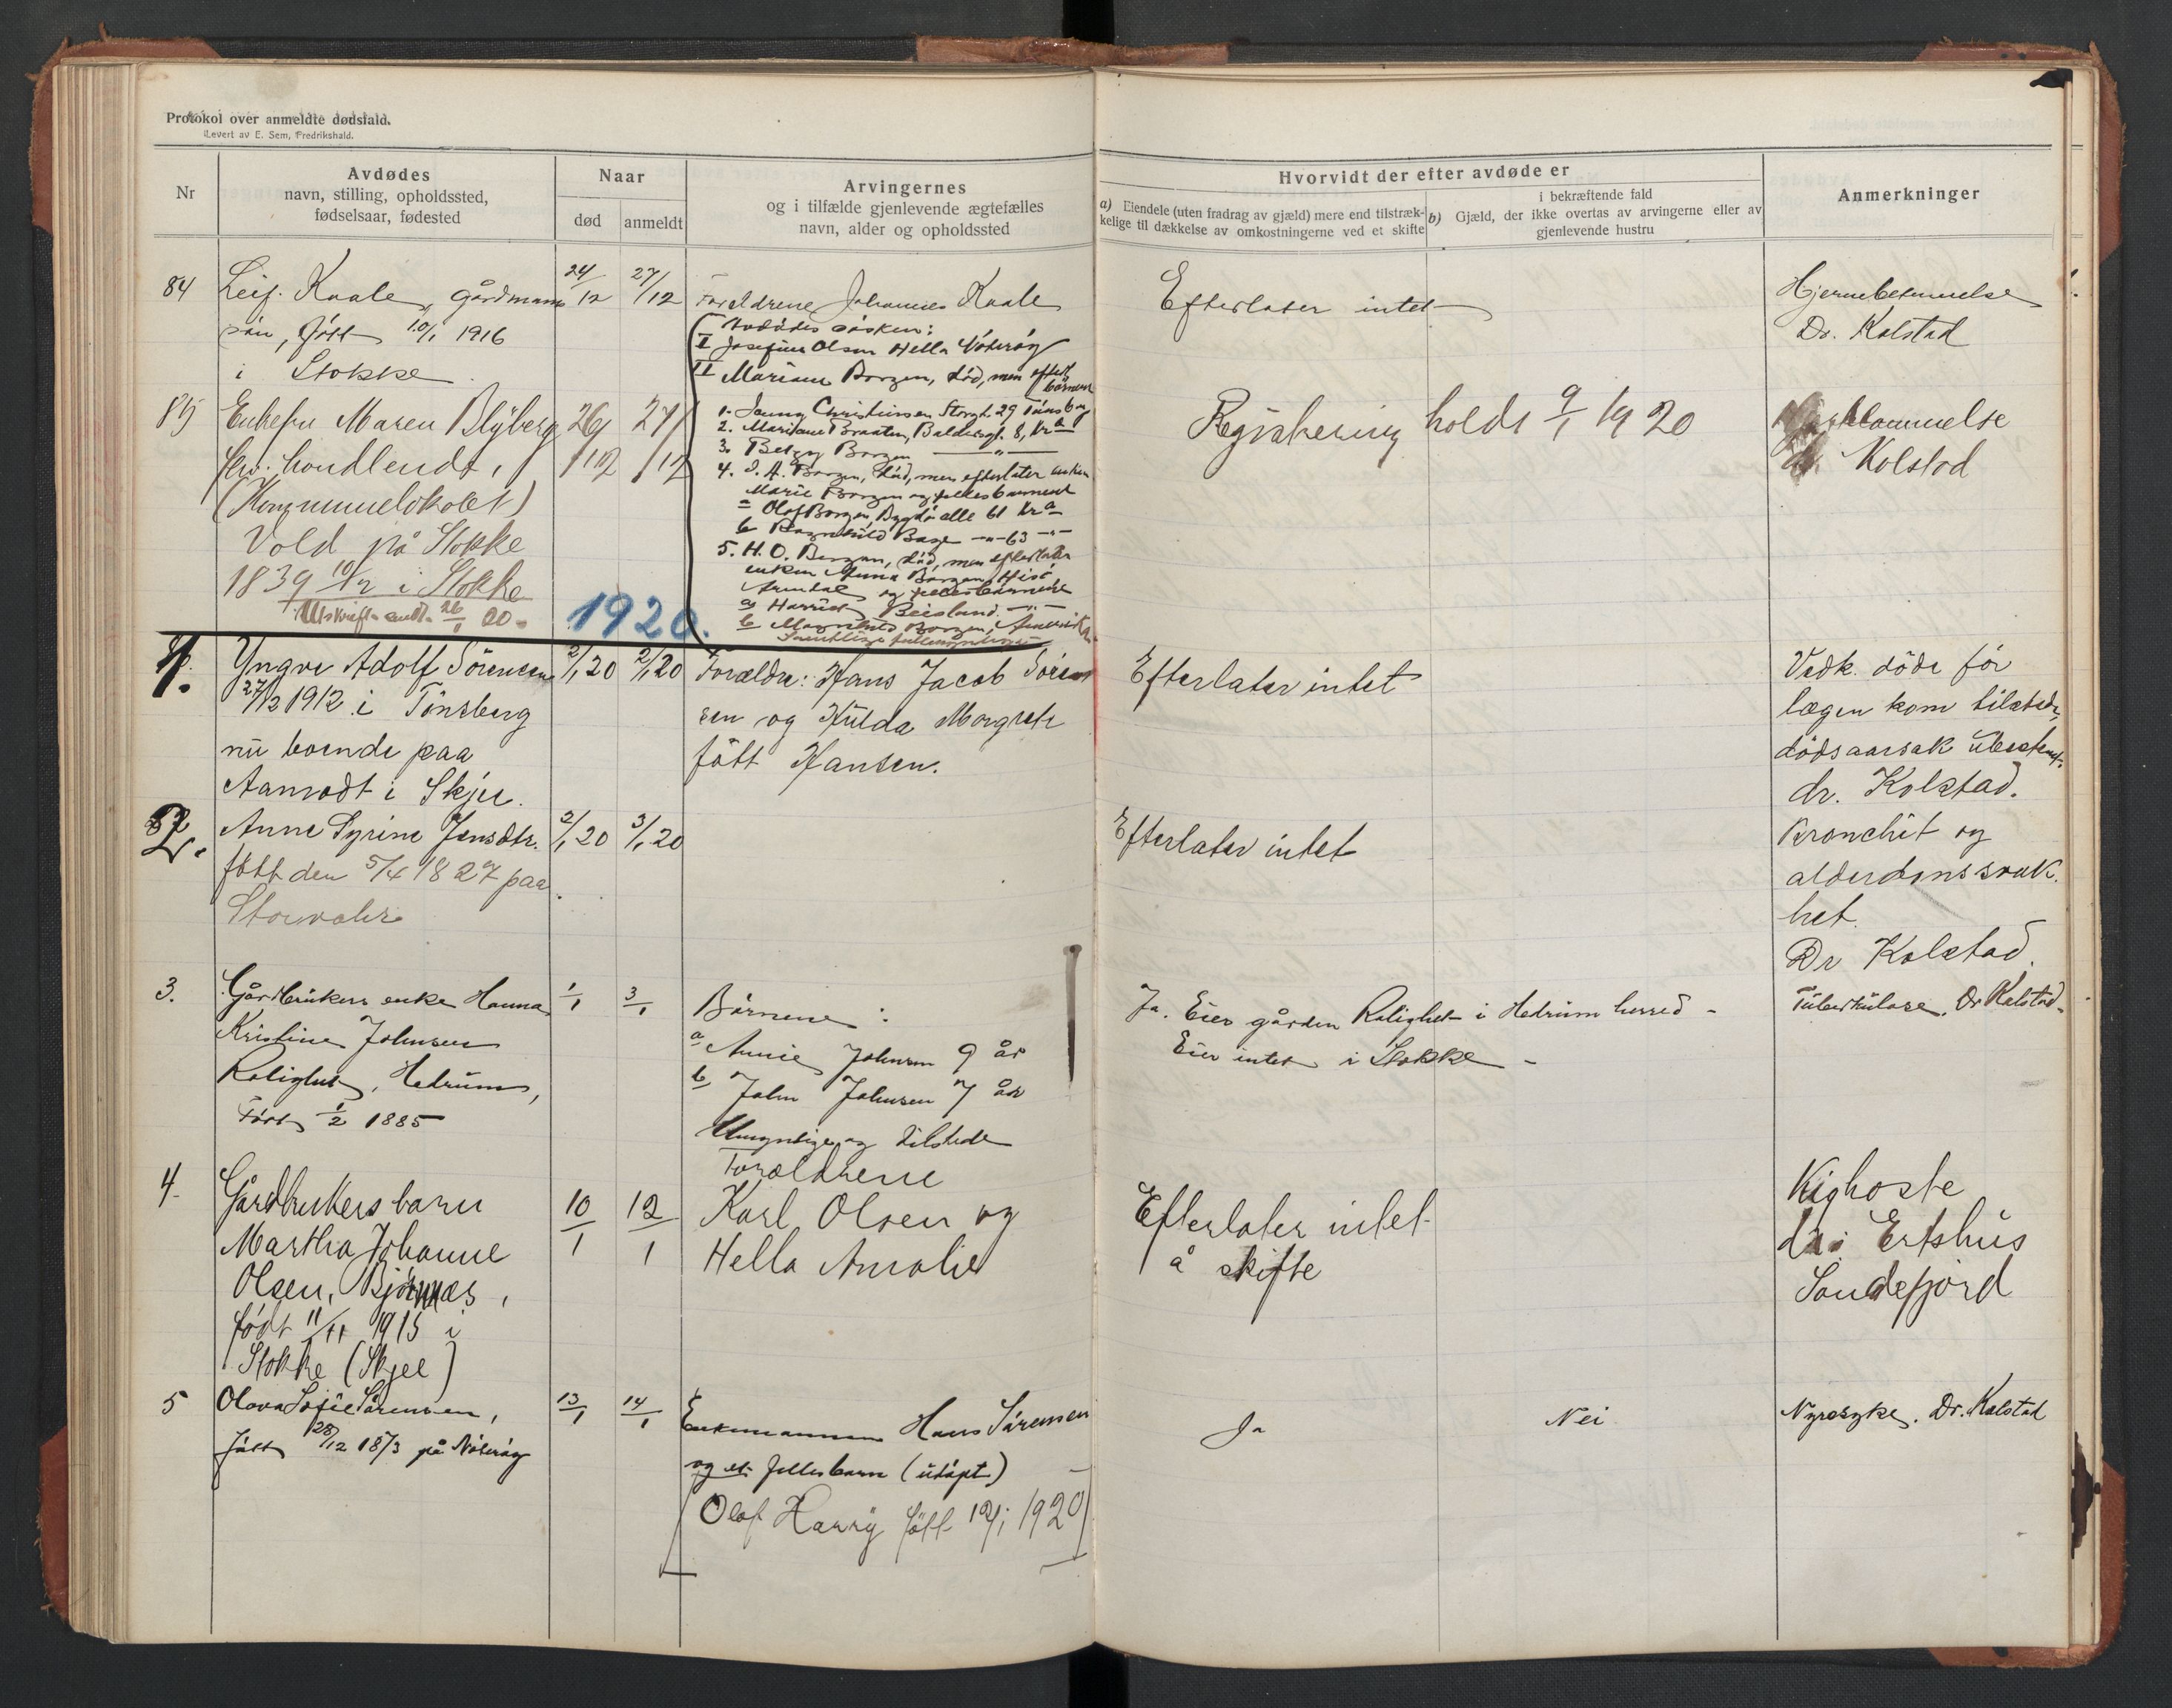 Protokol over anmeldte dødsfald.
Levert av E. Sem, Fredrikshald.
Nr
Avdødes
navn, stilling, opholdssted,
fødselsaar, fødested
Naar
død
anmeldt
Arvingernes
og i tilfælde gjenlevende ægtefælles
navn, alder og opholdssted
Hvorvidt der efter avdøde er
a) Eiendele (uten fradrag av gjæld) mere end tilstræk-
kelige til dækkelse av omkostningerne ved et skifte
i bekræftende fald
b) Gjæld, der ikke overtas av arvingerne eller av
gjenlevende hustru
Anmerkninger
84
Leif Kaale, gårdmans
søn, født 10/1 1916
i Stokke
24/12
27/12
Forældrene Johannes Kaale
Efterlater intet
Hjernebetennelse
Dr. Kolstad
85
Enkefru Maren Blyberg
forv. handlende,
(Kommunelokalet)
Vold på Stokke
1839 10/12 i Stokke
Utskrift sendt 26/1 20.
26/12
27/12
Avdødes søsken:
I Josefine Olsen Hella Nøterøy
II Mariane Borgen, død, men efterl.
børnene
1. Jenny Christiansen Storgt. 29 Tønsberg
2. Mariane Braaten, Baldersgt. 8, Kra
3. Betzy Borgen — " —
4. J. A. Borgen, død, men efterlater enken
Marie Borgen og fellesbarnene
a Olaf Borgen, Bygdø alle 61 Kra
b Ragnhild Bage -"- 63 -"-
5. H. O. Borgen, død, men efterlater
enken Anna Borgen, Hisø,
Arendal og fellesbarnene
a Harriet Beisland -"-
b Magnhild Borgen, Amerika
Samtlige fuldmyndige
Registrering holdt 9/1 1920
Kolstad
1920.
1.
Yngve Adolf Sørensen
27/12 1912 i Tønsberg
nu boende paa
Aanrødt i Skjee.
2/1 20
2/1 20
Forældre: Hans Jacob Sören
sen og Hulda Margrete
født Hansen.
Efterlater intet
Vedk. døde før
lægen kom tilstede,
dødsaarsak ubestemt.
dr. Kolstad.
2.
Anne Syrine Jensdtr.
født den 5/4 1827 paa
Storevahr
2/1 20
3/1 20
Efterlater intet
Bronchit og
alderdomssvak.
het.
Dr Kolstad.
3.
Gårdbrukers enke Hanna
Kristine Johnsen
Rolighet, Hedrum,
Født 1/2 1885
1/1
3/1
Børnene:
a Annie Johnsen 9 år
b John Johnsen 7 år
Umyndige og tilstede
Ja. Eier gården Rolighet i Hedrum herred -
Eier intet i Stokke -
Tuberkulose. Dr Kolstad.
4.
Gårdbrukers barn
Martha Johanne
Olsen, Bjørnnæs,
født 11/11 1915 i
Stokke (Skjee)
10/1
12/1
Forældrene
Karl Olsen og
Hella Amalie
Efterlater intet
å skifte
Kighoste
dr: Ertshus
Sandefjord
5
Olava Sofie Sørensen,
født 28/12 1873 på Nøterøy
13/1
14/1
Enkemannen Hans Sørensen
og et fellesbarn (udøpt)
Olaf Harry født 12/1 1920
Ja
Nei
Nyresyke. Dr. Kolstad